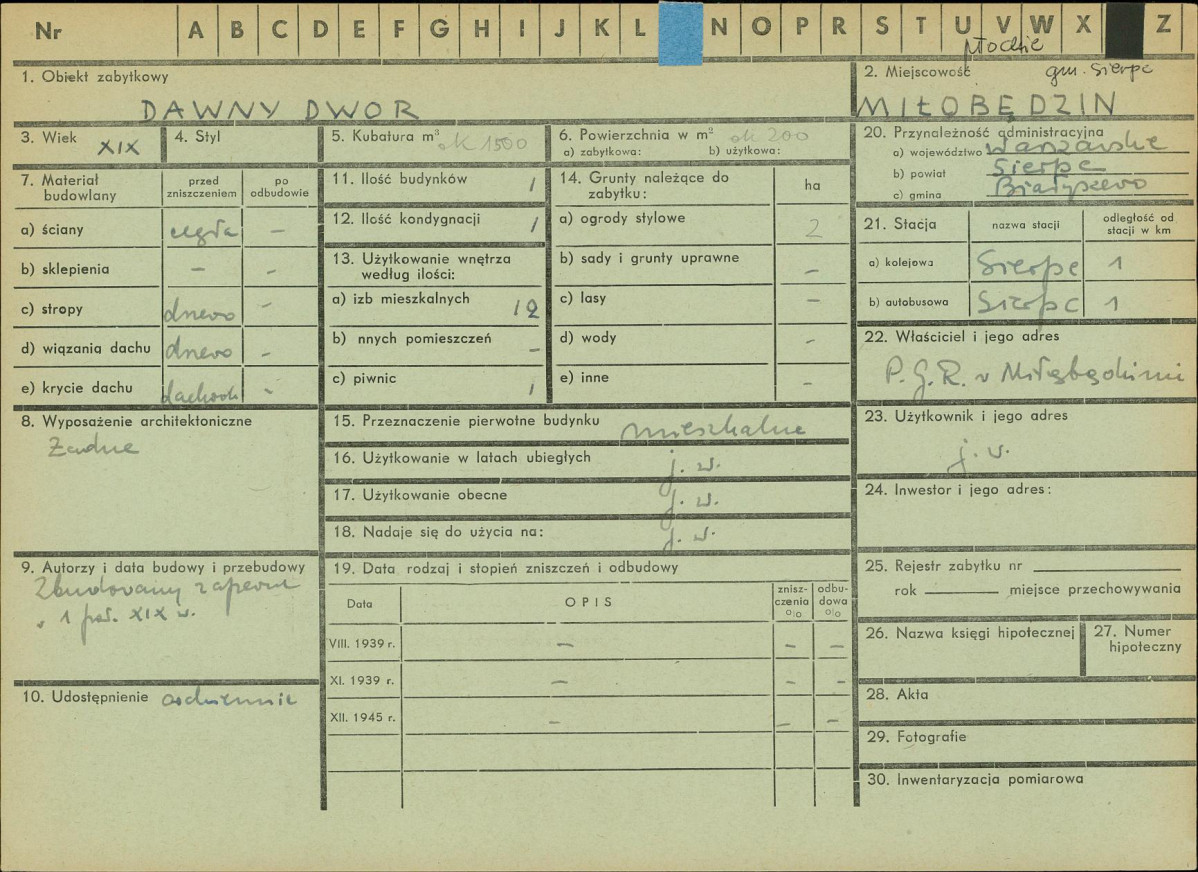 Nr A B C D E F G H I J K L N O P R S T U V W X Z
płockie
1. Obiekt zabytkowy
DAWNY DWOR
2. Miejscowość gm. Sierpc
MIŁOBĘDZIN
3. Wiek XIX
4. Styl
5. Kubatura m³ ok 1500
6. Powierzchnia w m² ok 200
a) zabytkowa: b) użytkowa:
20. Przynależność administracyjna
a) województwo Warszawskie
b) powiat Sierpc
c) gmina Białyszewo
7. Materiał budowlany
przed zniszczeniem
po odbudowie
a) ściany cegła –
b) sklepienia – –
c) stropy drewo –
d) wiązania dachu drewo –
e) krycie dachu –
11. Ilość budynków 1
12. Ilość kondygnacji 1
13. Użytkowanie wnętrza
według ilości:
a) izb mieszkalnych 12
b) nnych pomieszczeń –
c) piwnic 1
14. Grunty należące do
zabytku:
ha
a) ogrody stylowe 2
b) sady i grunty uprawne –
c) lasy –
d) wody –
e) inne –
21. Stacja
nazwa stacji
odległość od
stacji w km
a) kolejowa Sierpc 1
b) autobusowa Sierpc 1
22. Właściciel i jego adres
P. G. R. w
8. Wyposażenie architektoniczne
Żadne
15. Przeznaczenie pierwotne budynku mieszkalne
16. Użytkowanie w latach ubiegłych j. w.
17. Użytkowanie obecne j. w.
18. Nadaje się do użycia na: j. w.
23. Użytkownik i jego adres
j. w.
24. Inwestor i jego adres:
9. Autorzy i data budowy i przebudowy
Zbudowany zapewne
w 1 poł. XIX w.
10. Udostępnienie codziennie
19. Data rodzaj i stopień zniszczeń i odbudowy
Data
OPIS
znisz-
czenia
o|o
odbu-
dowa
o|o
VIII. 1939 r. – – –
XI. 1939 r. – – –
XII. 1945 r. – – –
25. Rejestr zabytku nr
rok miejsce przechowywania
26. Nazwa księgi hipotecznej
27. Numer
hipoteczny
28. Akta
29. Fotografie
30. Inwentaryzacja pomiarowa